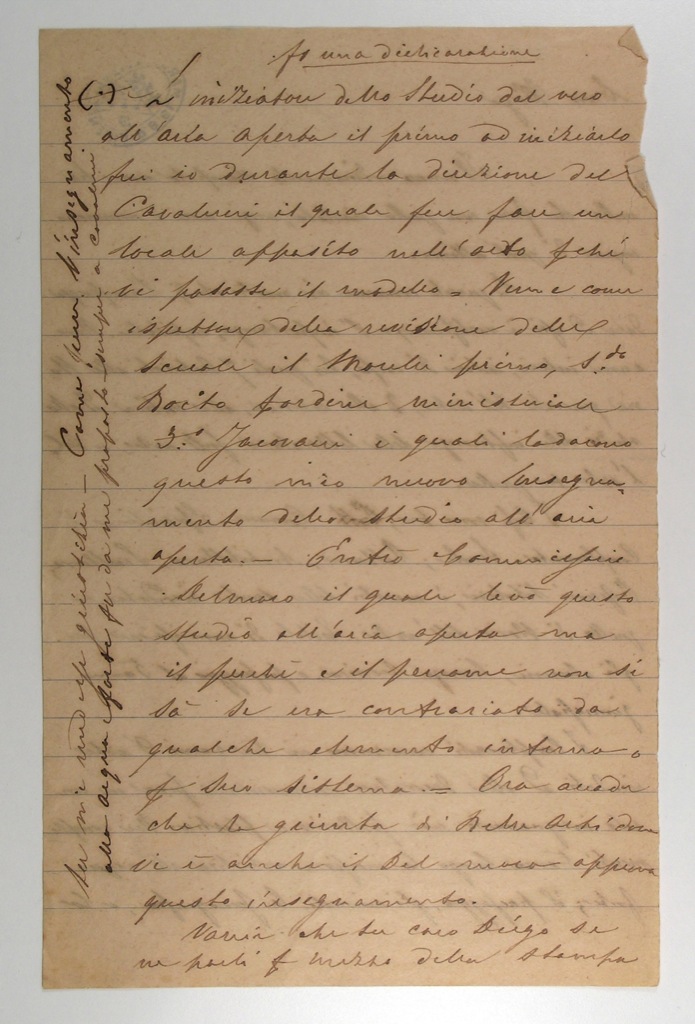 fo una dichiarazione
(·) L'iniziatore dello Studio del vero
all'aria aperta il primo ad iniziarlo
fui io durante la direzione del
Cavalieri il quale fece fare un
locale apposito nell'orto
vi posasse il modello = Venne come
ispettore della revisione delle
Scuole il Morelli primo, S.do
Boito d'ordine ministeriale
3.o Jacovacci i quali lodarono
questo mio nuovo insegna-
mento dello studio all'aria
aperta. — Entrò Commissario
Delmoro il quale levò questo
studio all'aria aperta ma
il perchè e il percome non si
sà se era contrariato da
qualche elemento interno o
p suo sistema. — Ora accade
che la giunta di Belle Arti dove
vi è anche il Del moro approva
questo insegnamento.
Vorrei che tu caro Diego se
ne parli p mezzo della stampa
giustizia — Come pure l'insegnamento
all'acqua forte fu da me proposto sempre a Cavalieri